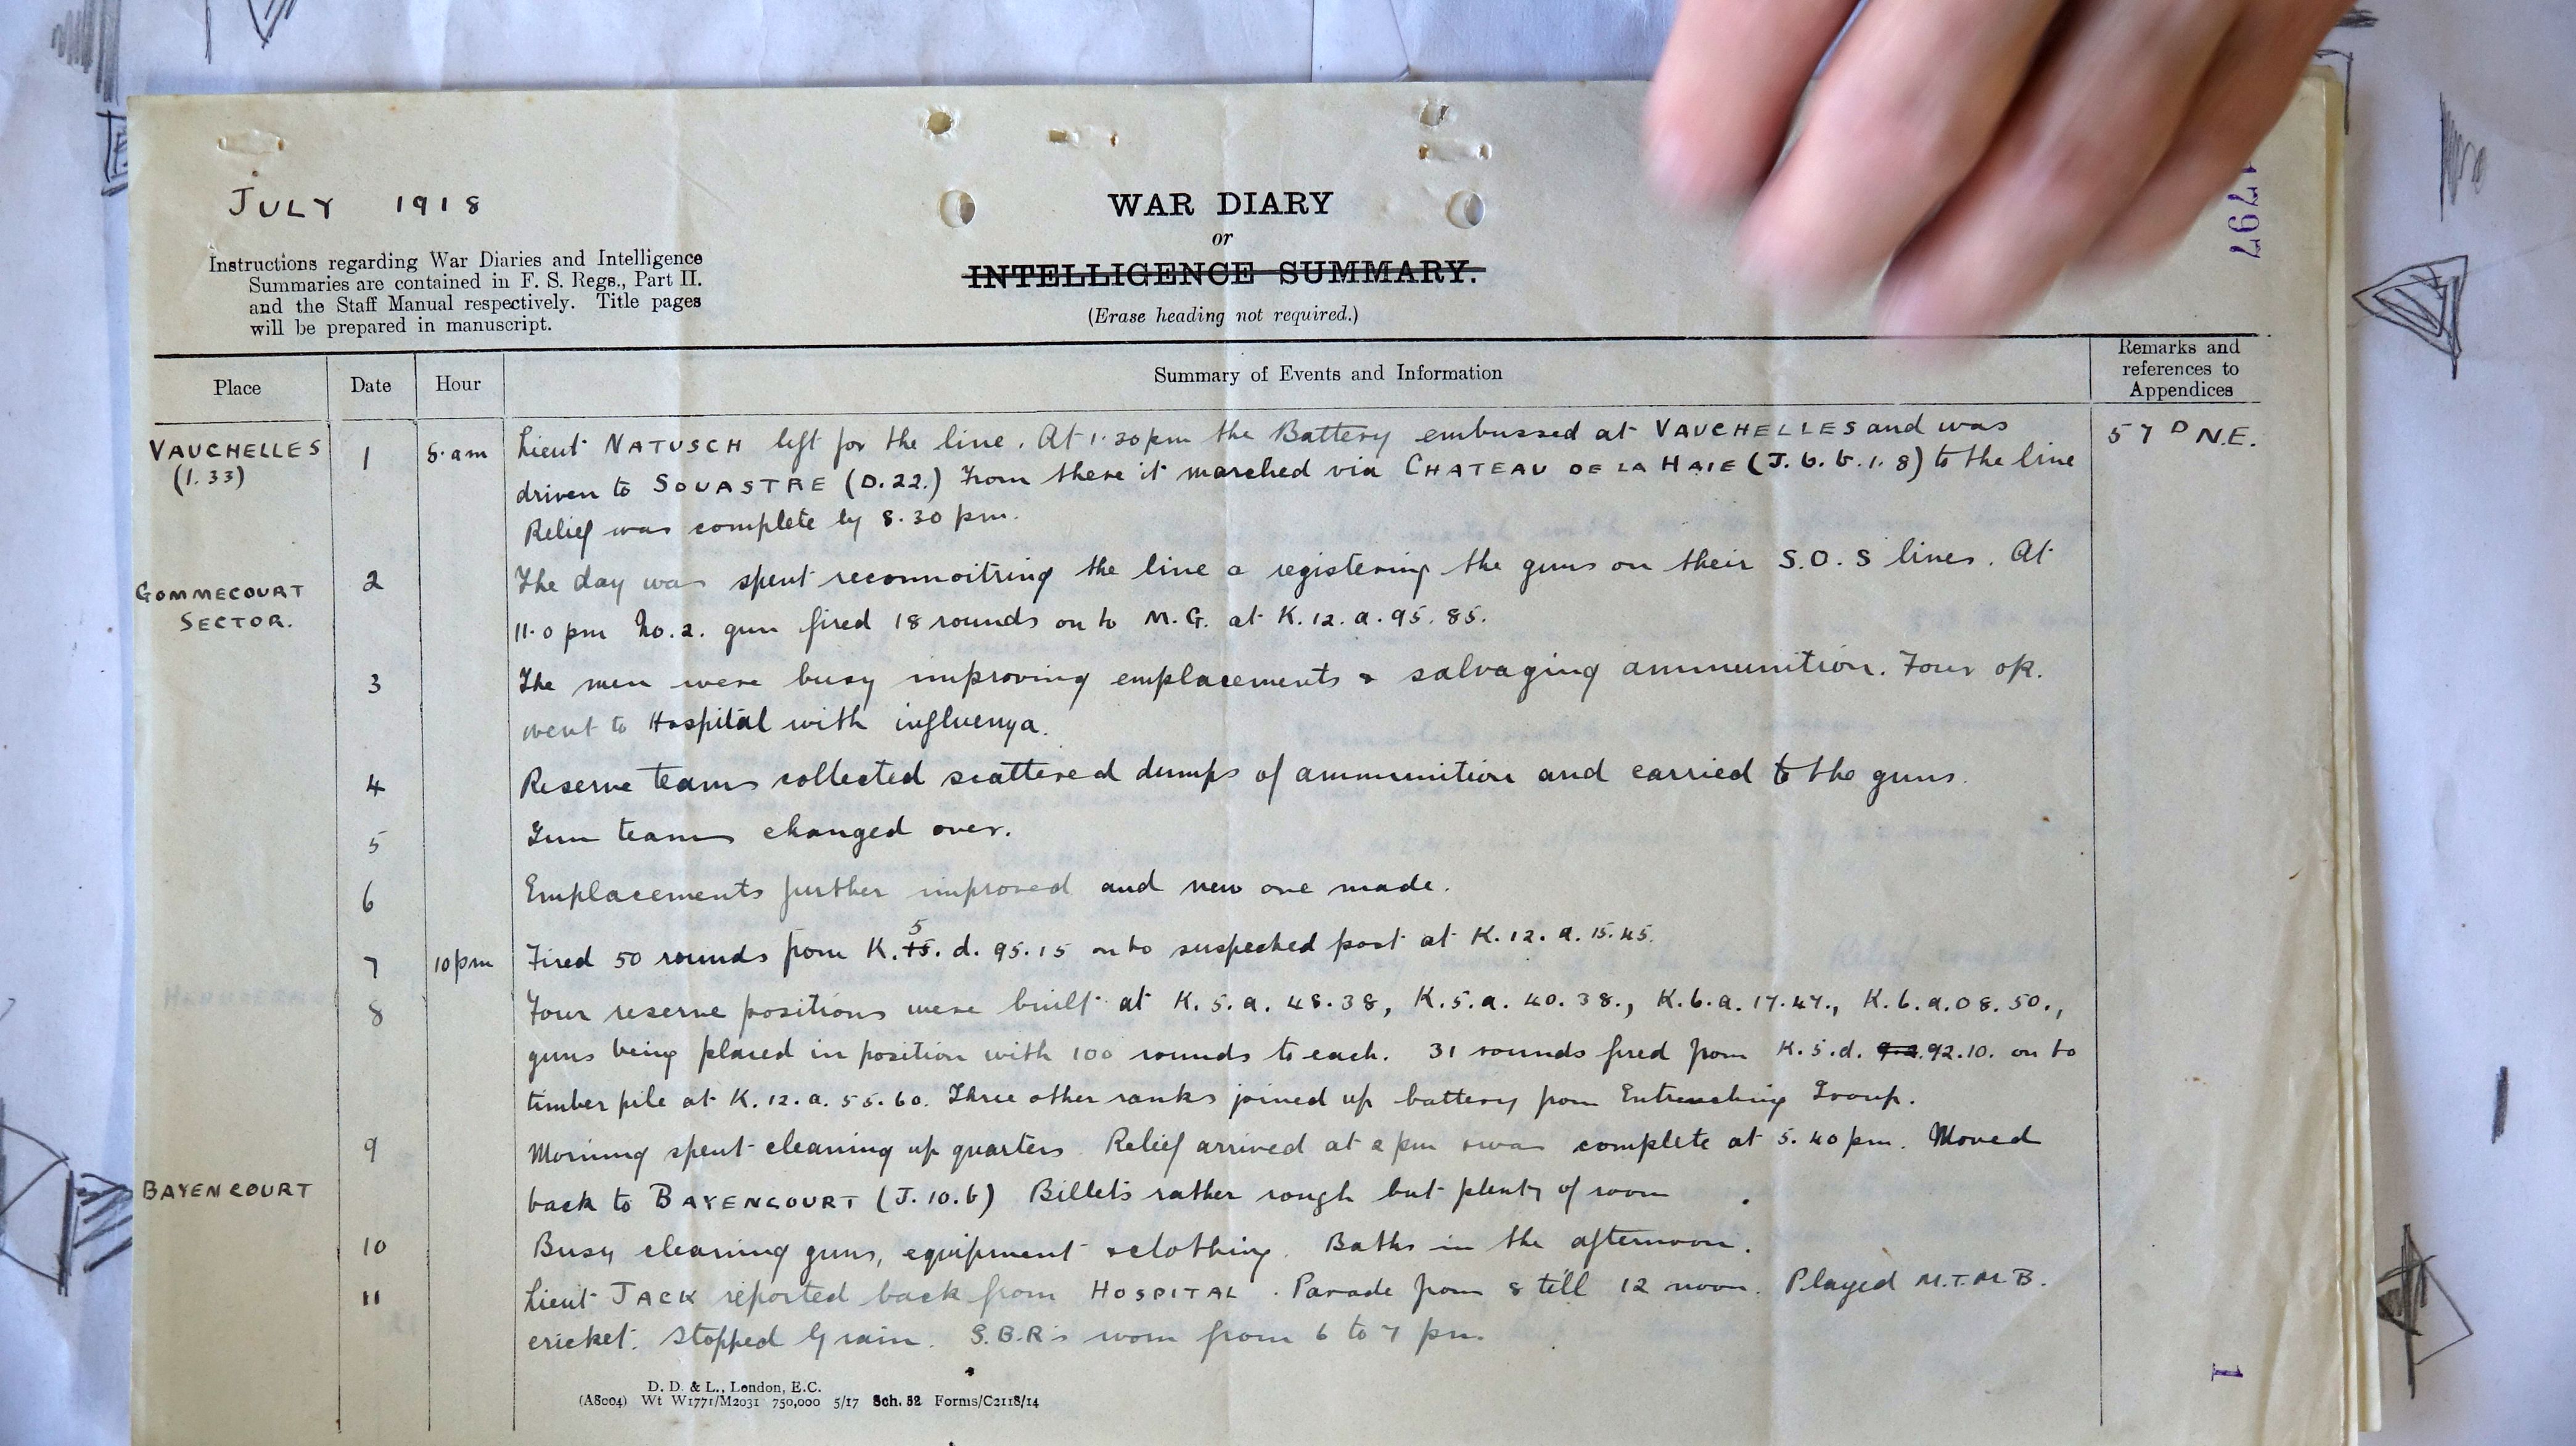 JULY 1918
WAR DIARY
or
INTELLIGENCE SUMMARY.
(Erase heading not required.)
Instructions regarding War Diaries and Intelligence
Summaries are contained in F. S. Regs., Part II.
and the Staff Manual respectively. Title pages
will be prepared in manuscript.
Place Date Hour Summary of Events and Information Remarks and references to Appendices
VAUCHELLES 1 8. am Lieut NATUSCH left for the line. At 1.30 pm the Battery embussed at VAUCHELLES and was 57 D N.E.
(I. 33) driven to SOUASTRE (D.22.) From there it marched via CHATEAU DE LA HAIE (J. 6. b. 1. 8) to the line
Relief was complete by 8.30 pm.
GOMMECOURT 2 The day was spent reconnoitring the line & registering the guns on their S.O.S lines. At
SECTOR. 11.0 pm No. 2. gun fired 18 rounds on to M.G. at K. 12. a. 95. 85.
3 The men were busy improving emplacements & salvaging ammunition. Four OR.
went to Hospital with influenza.
4 Reserve teams collected scattered dumps of ammunition and carried to the guns.
5 Gun teams changed over.
6 Emplacements further improved and new one made.
7 10 pm Fired 50 rounds from K. 5. d. 95. 15 on to suspected post at K. 12. a. 15. 45.
8 Four reserve positions were built at K. 5. a. 48. 38, K. 5. a. 40. 38., K. 6. a. 17. 47., K. 6. a. 08. 50.,
guns being placed in position with 100 rounds to each. 31 rounds fired from K. 5. d. 92. 10. on to
timber pile at K. 12. a. 55. 60. Three other ranks joined up battery from Entrenching Group.
9 Morning spent cleaning up quarters. Relief arrived at 2 pm & was complete at 5. 40 pm. Moved
BAYENCOURT back to BAYENCOURT (J. 10. b) Billets rather rough but plenty of room
10 Busy cleaning guns, equipment & clothing. Baths in the afternoon.
11 Lieut JACK reported back from HOSPITAL. Parade from 8 till 12 noon. Played M.T.M.B.
cricket. Stopped by rain. S.B.R's worn from 6 to 7 pm.
D. D. & L., London, E.C.
(A8004) Wt W1771/M2031 750,000 5/17 Sch. 52 Forms/C2118/14
1